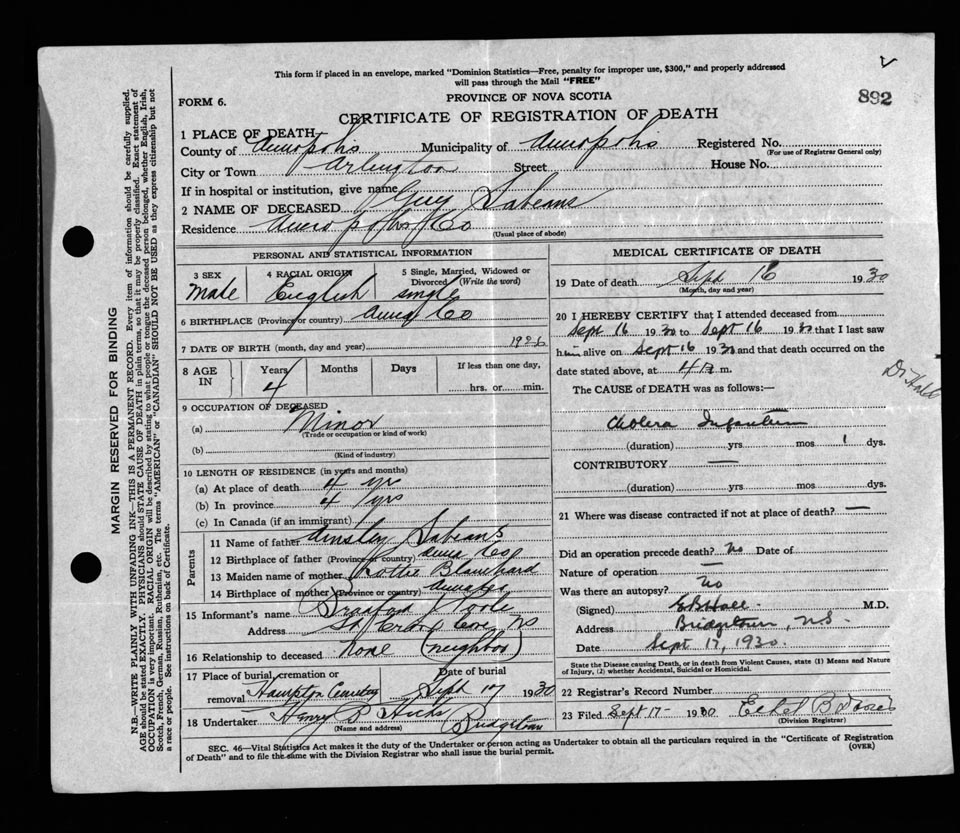 This form if placed in an envelope, marked "Dominion Statistics—Free, penalty for improper use, $300," and properly addressed
will pass through the Mail "FREE"
892
FORM 6.
PROVINCE OF NOVA SCOTIA
CERTIFICATE OF REGISTRATION OF DEATH
1 PLACE OF DEATH
County of Annapolis Municipality of Annapolis Registered No.
(For use of Registrar General only)
City or Town Arlington Street House No.
If in hospital or institution, give name
2 NAME OF DECEASED Guy Sabeans
Residence Annapolis Co
(Usual place of abode)
PERSONAL AND STATISTICAL INFORMATION
3 SEX 4 RACIAL ORIGIN 5 Single, Married, Widowed or
Divorced (Write the word)
Male English single
6 BIRTHPLACE (Province or country) Anna Co
7 DATE OF BIRTH (month, day and year) 1926
8 AGE IN Years Months Days If less than one day,
4 hrs. or min.
9 OCCUPATION OF DECEASED
(a) Minor
(Trade or occupation or kind of work)
(b)
(Kind of industry)
10 LENGTH OF RESIDENCE (in years and months)
(a) At place of death 4 yr
(b) In province 4 yrs
(c) In Canada (if an immigrant)
Parents
11 Name of father Ainsley Sabeans
12 Birthplace of father (Province or country) Anna Co
13 Maiden name of mother Lottie Blanchard
14 Birthplace of mother (Province or country)
15 Informant's name Bradford Poole
Address St Croix Cove NS
16 Relationship to deceased None (neighbor)
17 Place of burial, cremation or Date of burial
removal Hampton Cemetery Sept 17 1930
18 Undertaker Henry B Hicks Bridgetown
(Name and address)
MEDICAL CERTIFICATE OF DEATH
19 Date of death Sept 16 1930
(Month, day and year)
20 I HEREBY CERTIFY that I attended deceased from
Sept 16 1930 to Sept 16 1930 that I last saw
him alive on Sept 16 1930 and that death occurred on the
date stated above, at 4 m.
Dr Hall
The CAUSE of DEATH was as follows:—
Cholera Infantum
(duration) yrs mos 1 dys.
CONTRIBUTORY —
(duration) yrs mos dys.
21 Where was disease contracted if not at place of death? —
Did an operation precede death? No Date of
Nature of operation —
Was there an autopsy? No
(Signed) E B Hall M.D.
Address Bridgetown, N.S.
Date Sept 17, 1930
State the Disease causing Death, or in death from Violent Causes, state (1) Means and Nature
of Injury, (2) whether Accidental, Suicidal or Homicidal.
22 Registrar's Record Number
23 Filed Sept 17- 1930 Ethel B
(Division Registrar)
SEC. 46—Vital Statistics Act makes it the duty of the Undertaker or person acting as Undertaker to obtain all the particulars required in the "Certificate of Registration
of Death" and to file the same with the Division Registrar who shall issue the burial permit.
(OVER)
MARGIN RESERVED FOR BINDING
N.B.—WRITE PLAINLY WITH UNFADING INK—THIS IS A PERMANENT RECORD. Every item of information should be carefully supplied.
AGE should be stated EXACTLY. PHYSICIANS should STATE CAUSE OF DEATH in plain terms, so that it may be properly classified. Exact statement of
OCCUPATION is very important. RACIAL ORIGIN will be described by stating to what people or tongue the deceased person belonged, whether English, Irish,
Scotch, French, German, Russian, Ruthenian, etc. The terms "AMERICAN" or "CANADIAN" SHOULD NOT BE USED as they express citizenship but not
a race or people. See instructions on back of Certificate.